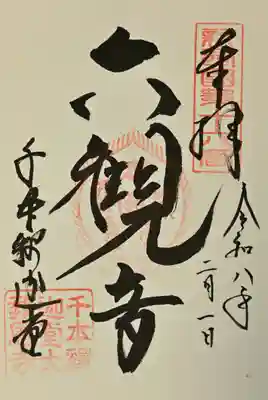 奉拝
令和八年
二月一日
六観音
千本釈迦堂
千本釋
迦堂大
報恩寺